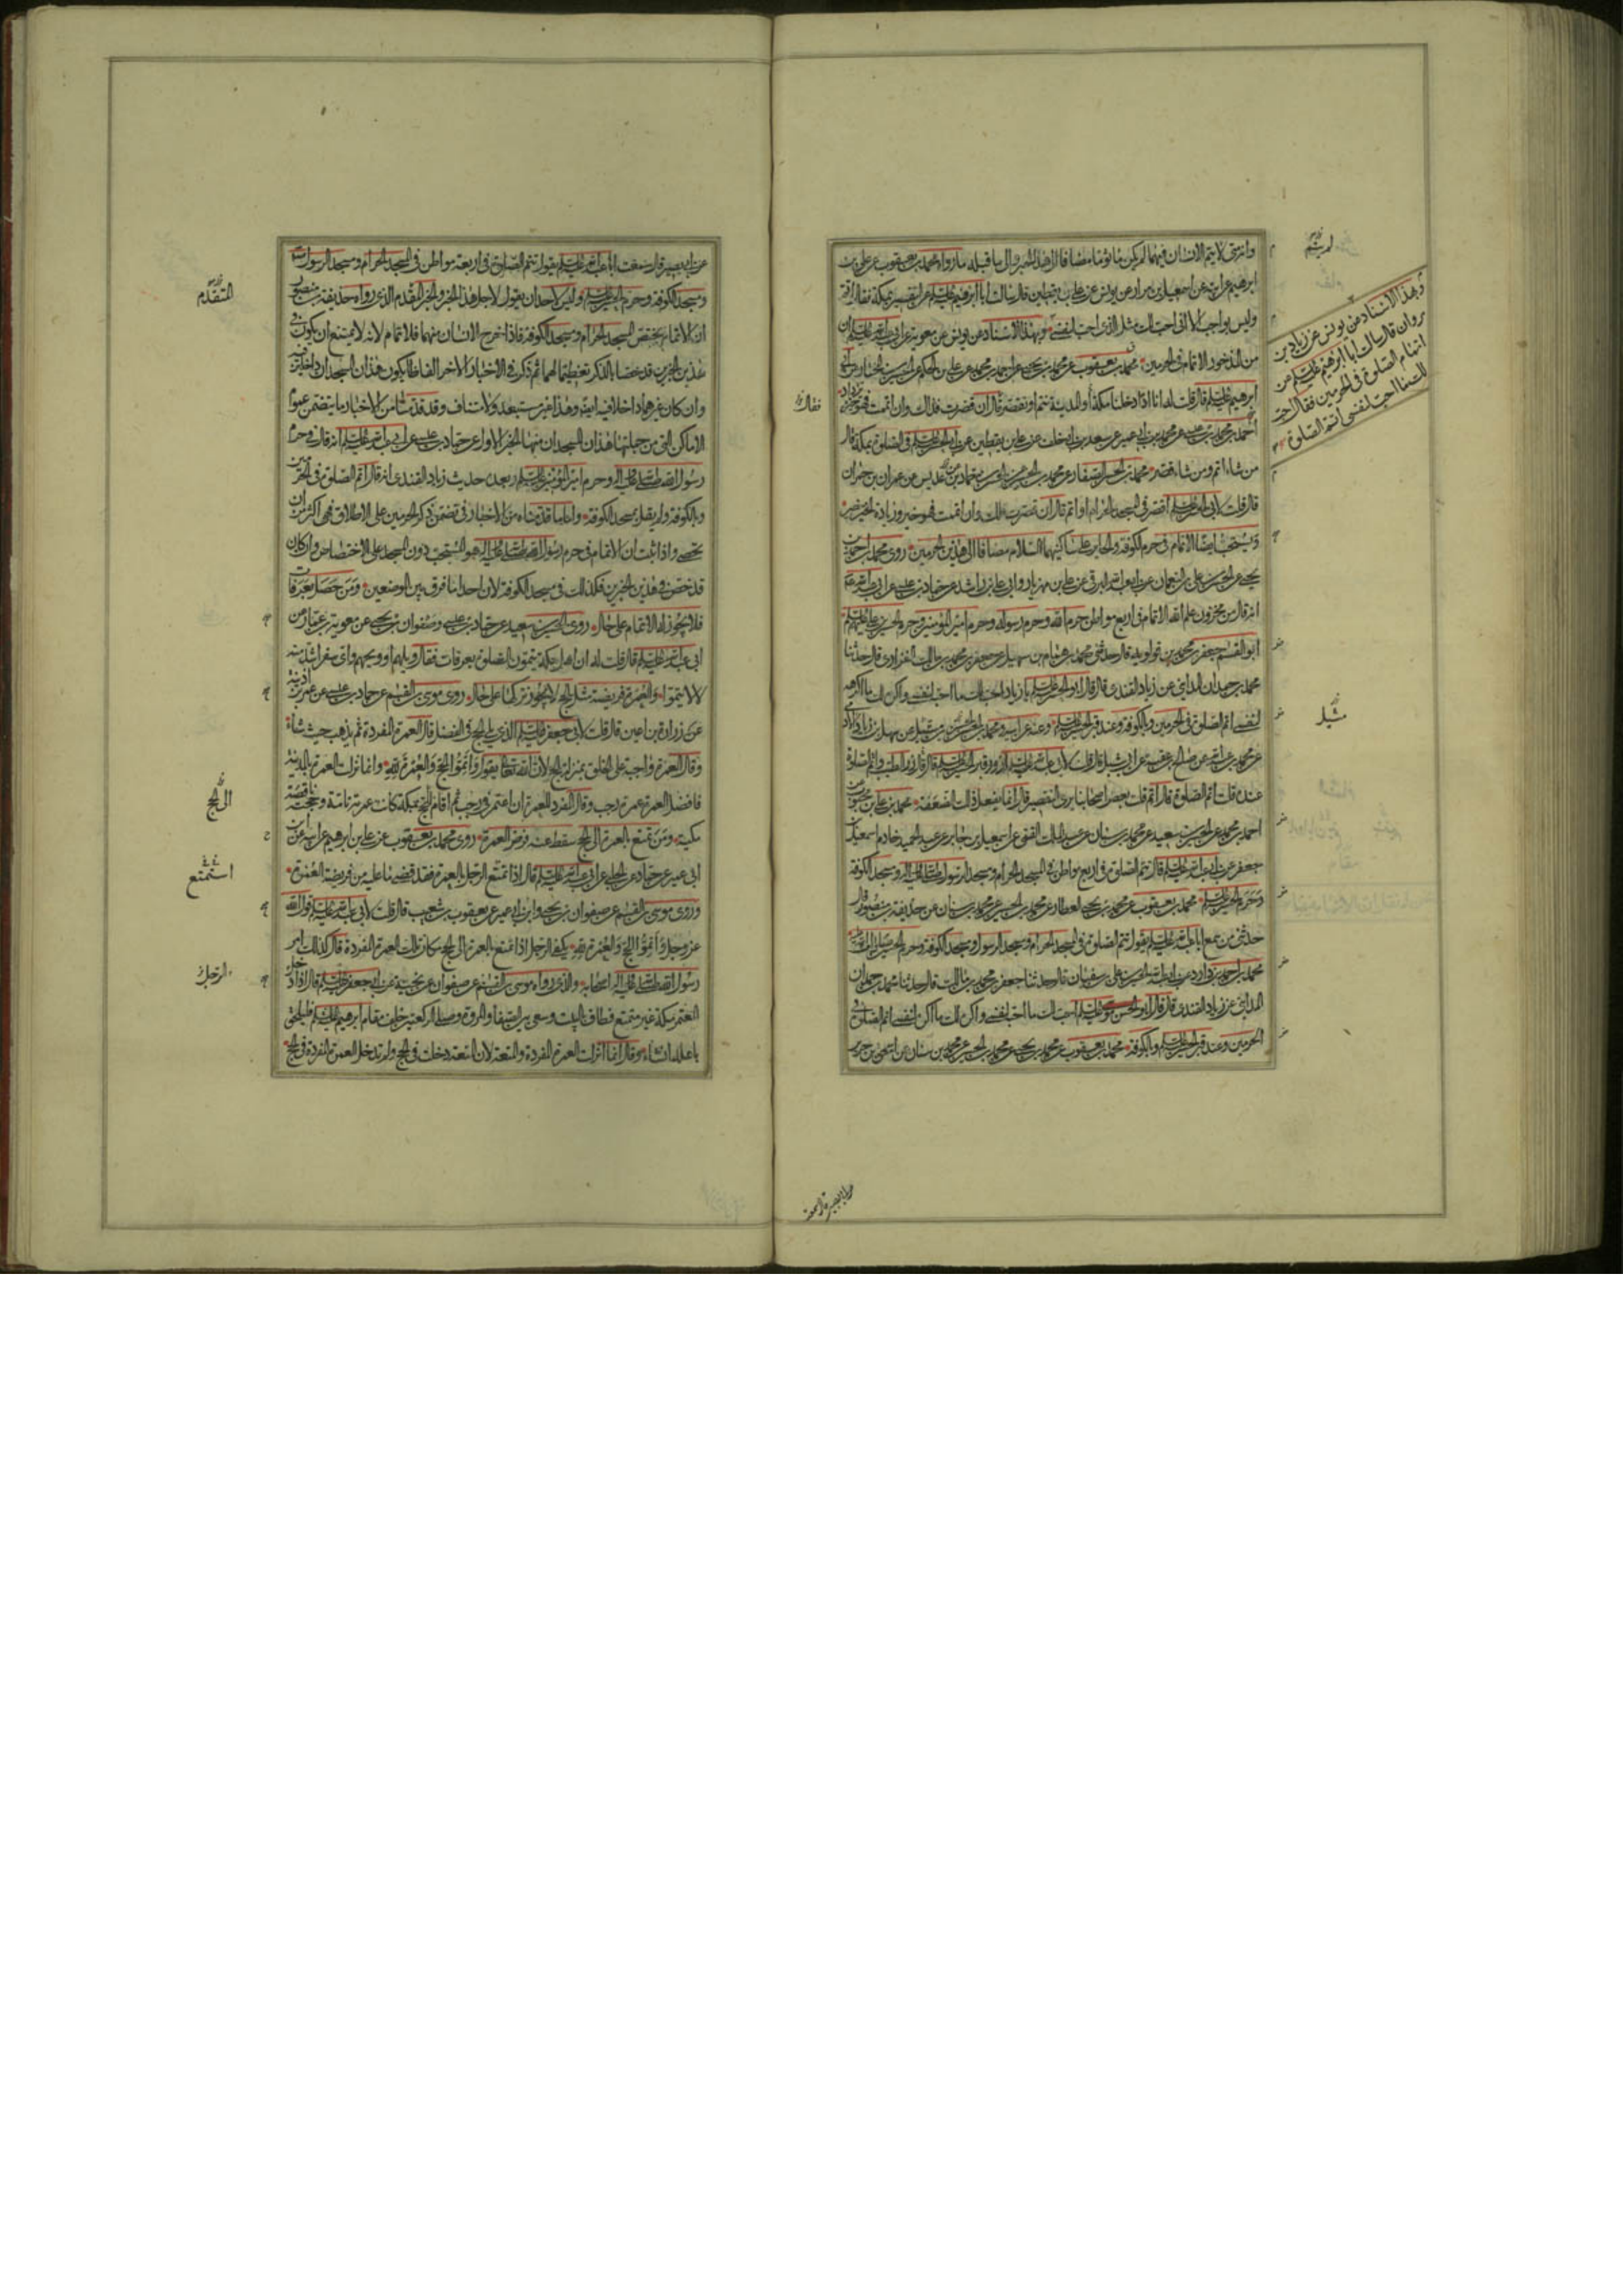 ابرهيم عن ابيه عن اسمعيل بن مرار عن يونس عن علي بن يقطين قال سالت ابا ابرهيم عليه السلم عن التقصير بمكة فقال اتم
وليس بواجب الا اني احب لك مثل الذي احب لنفسي وبهذا الاسناد عن يونس عن معوية عن ابي عبد الله عليه السلم ان
من المذخور الاتمام في الحرمين محمد بن يعقوب عن محمد بن يحيى عن احمد بن محمد عن علي بن الحكم عن الحسين بن المختار عن ابي
ابرهيم عليه السلم قال قلت له انا اذا دخلنا مكة والمدينة نتم او نقصر قال ان قصرت فذاك وان اتممت فهو خير يزداد
احمد بن محمد بن عن محمد بن ابي عمير عن سعد بن ابي خلف عن علي بن يقطين عن ابي الحسن عليه السلم في الصلوة بمكة قال
من شاء اتم ومن شاء قصر محمد بن الحسن الصفار عن محمد بن الحسين عن الحسن بن حماد بن عديس عن عمران بن حمران
قال قلت لابي الحسن عليه السلم اقصر في المسجد الحرام او اتم قال ان قصرت فلك وان اتممت فهو خير وزيادة الخير خير
ويستحب ايضا الاتمام في حرم الكوفة والحاير على ساكنيهما السلام مضافا الى هذين الحرمين روى محمد بن احمد بن
يحيى عن الحسن بن علي بن النعمان عن ابي عبد الله البرقي عن علي بن مهزيار وابي علي بن راشد عن حماد بن عيسى عن ابي عبد الله
انه قال من مخزون علم الله الاتمام في اربع مواطن حرم الله وحرم رسوله وحرم امير المؤمنين وحرم الحسين بن علي عليهم السلم
ابو القسم جعفر بن محمد بن قولويه قال حدثني محمد بن همام بن سهيل عن جعفر بن محمد بن مالك الفزاري قال حدثنا
محمد بن حمدان المدايني عن زياد القندي قال قال ابو الحسن عليه السلم يا زياد احب لك ما احب لنفسي واكره لك ما اكره
لنفسي اتم الصلوة في الحرمين وبالكوفة وعند قبر الحسين عليه السلم
عنده قلت اتم الصلوة قال اتم قلت بعض اصحابنا يرى التقصير قال انما يفعل ذلك الضعفة محمد بن علي بن محبوب عن
احمد بن محمد عن الحسين بن سعيد عن محمد بن سنان عن عبد الملك القمي عن اسمعيل بن جابر عن عبد الحميد خادم اسمعيل بن
جعفر عن ابي عبد الله عليه السلم قال تتم الصلوة في اربع مواطن في المسجد الحرام ومسجد الرسول صلى الله عليه واله ومسجد الكوفة
وحرم الحسين عليه السلم محمد بن يعقوب عن محمد بن يحيى العطار عن محمد بن الحسين عن محمد بن سنان عن حذيفة بن منصور قال
حدثني من سمع ابا عبد الله عليه السلم يقول تتم الصلوة في المسجد الحرام ومسجد الرسول ومسجد الكوفة وحرم الحسين
المدايني عن زياد القندي قال قال ابو الحسن موسى عليه السلم احب لك ما احب لنفسي واكره لك ما اكره لنفسي اتم الصلوة في
الحرمين وعند قبر الحسين عليه السلم وبالكوفة محمد بن يعقوب عن محمد بن يحيى عن محمد بن الحسين عن محمد بن سنان عن اسحق بن جرير
وبهذا الاسناد عن يونس عن زياد بن
مروان قال سالت ابا ابرهيم عليه السلم عن
اتمام الصلوة في الحرمين فقال احب
لك ما احب لنفسي اتم الصلوة
مثله
فقال
عن ابي بصير قال سمعت
عن ابي بصير قال سمعت ابا عبد الله عليه السلم يقول تتم الصلوة في اربعة مواطن في المسجد الحرام ومسجد الرسول
ومسجد الكوفة وحرم الحسين عليه السلم وليس لاحد ان يقول لاجل هذا الخبر والخبر المقدم الذي رواه حذيفة بن منصور
ان الاتمام يختص المسجد الحرام ومسجد الكوفة فاذا خرج الانسان منهما فلا اتمام لانه لا يمتنع ان يكون في
هذين الخبرين قد خصا بالذكر تعظيما لهما ثم ذكر في الاخبار الاخر الفاظا يكون هذان المسجدان داخلين فيه
وان كان غيرهما داخلا فيه ايضا وهذا غير مستبعد ولا متناف وقد قدمنا من الاخبار ما يتضمن عموم
الاماكن التي من جملتها هذان المسجدان منها الخبر الاول عن حماد بن عيسى عن ابي عبد الله عليه السلم انه قال في وحرم
رسول الله صلى الله عليه واله وحرم امير المؤمنين عليه السلم وبعده حديث زياد القندي انه قال اتم الصلوة في الحرمين
وبالكوفة ولم يقل بمسجد الكوفة واما ما قدمناه من الاخبار في تضمن ذكر الحرمين على الاطلاق فهي اكثر من ان
تحصى واذا ثبت ان الاتمام في حرم رسول الله صلى الله عليه واله هو المستحب دون المسجد على الاختصاص وان كان
قد خص في هذين الخبرين فكذلك في مسجد الكوفة لان احدا ما فرق بين الموضعين ومن حصل بعرفات
فلا يجوز له الاتمام على حال روى الحسين بن سعيد عن حماد بن عيسى وصفوان بن يحيى عن معوية بن عمار عن
ابي عبد الله عليه السلم قال قلت له ان اهل مكة يتمون الصلوة بعرفات فقال ويلهم او ويحهم واي سفر اشد منه
لا لا يتموا والعمرة فريضة مثل الحج لا يجوز تركها على حال روى موسى بن القسم عن حماد بن عيسى عن عمر بن اذينة
عن زرارة بن اعين قال قلت لابي جعفر عليه السلم الذي يلي الحج في الفضل قال العمرة المفردة ثم يذهب حيث شاء
وقال العمرة واجبة على الخلق بمنزلة الحج لان الله تعالى يقول واتموا الحج والعمرة لله وانما نزلت العمرة بالمدينة
فافضل العمرة عمرة رجب وقال المفرد للعمرة ان اعتمر في رجب ثم اقام الحج بمكة كانت عمرته تامة وحجته ناقصة
مكية ومن تمتع بالعمرة الى الحج سقط عنه فرض العمرة روى محمد بن يعقوب عن علي بن ابرهيم عن ابيه عن ابن
ابي عمير عن حماد عن الحلبي عن ابي عبد الله عليه السلم قال اذا تمتع الرجل بالعمرة فقد قضى ما عليه من فريضة العمرة
وروى موسى بن القسم عن صفوان بن يحيى وابن ابي عمير عن يعقوب بن شعيب قال قلت لابي عبد الله عليه السلم قول الله
عز وجل واتموا الحج والعمرة لله يكفي الرجل اذا تمتع بالعمرة الى الحج مكان تلك العمرة المفردة قال كذلك امر
رسول الله صلى الله عليه واله اصحابه والذي رواه موسى بن القسم عن صفوان عن نجية عن ابي جعفر عليه السلم قال اذا دخل
المعتمر مكة غير متمتع فطاف بالبيت وسعى بين الصفا والمروة وصلى الركعتين خلف مقام ابرهيم عليه السلم فليلحق
باهله ان شاء وقال انما انزلت العمرة المفردة والمتعة لان المتعة دخلت في الحج ولم تدخل العمرة المفردة في الحج
المتقدم
الى الحج
استمتع
الرجل